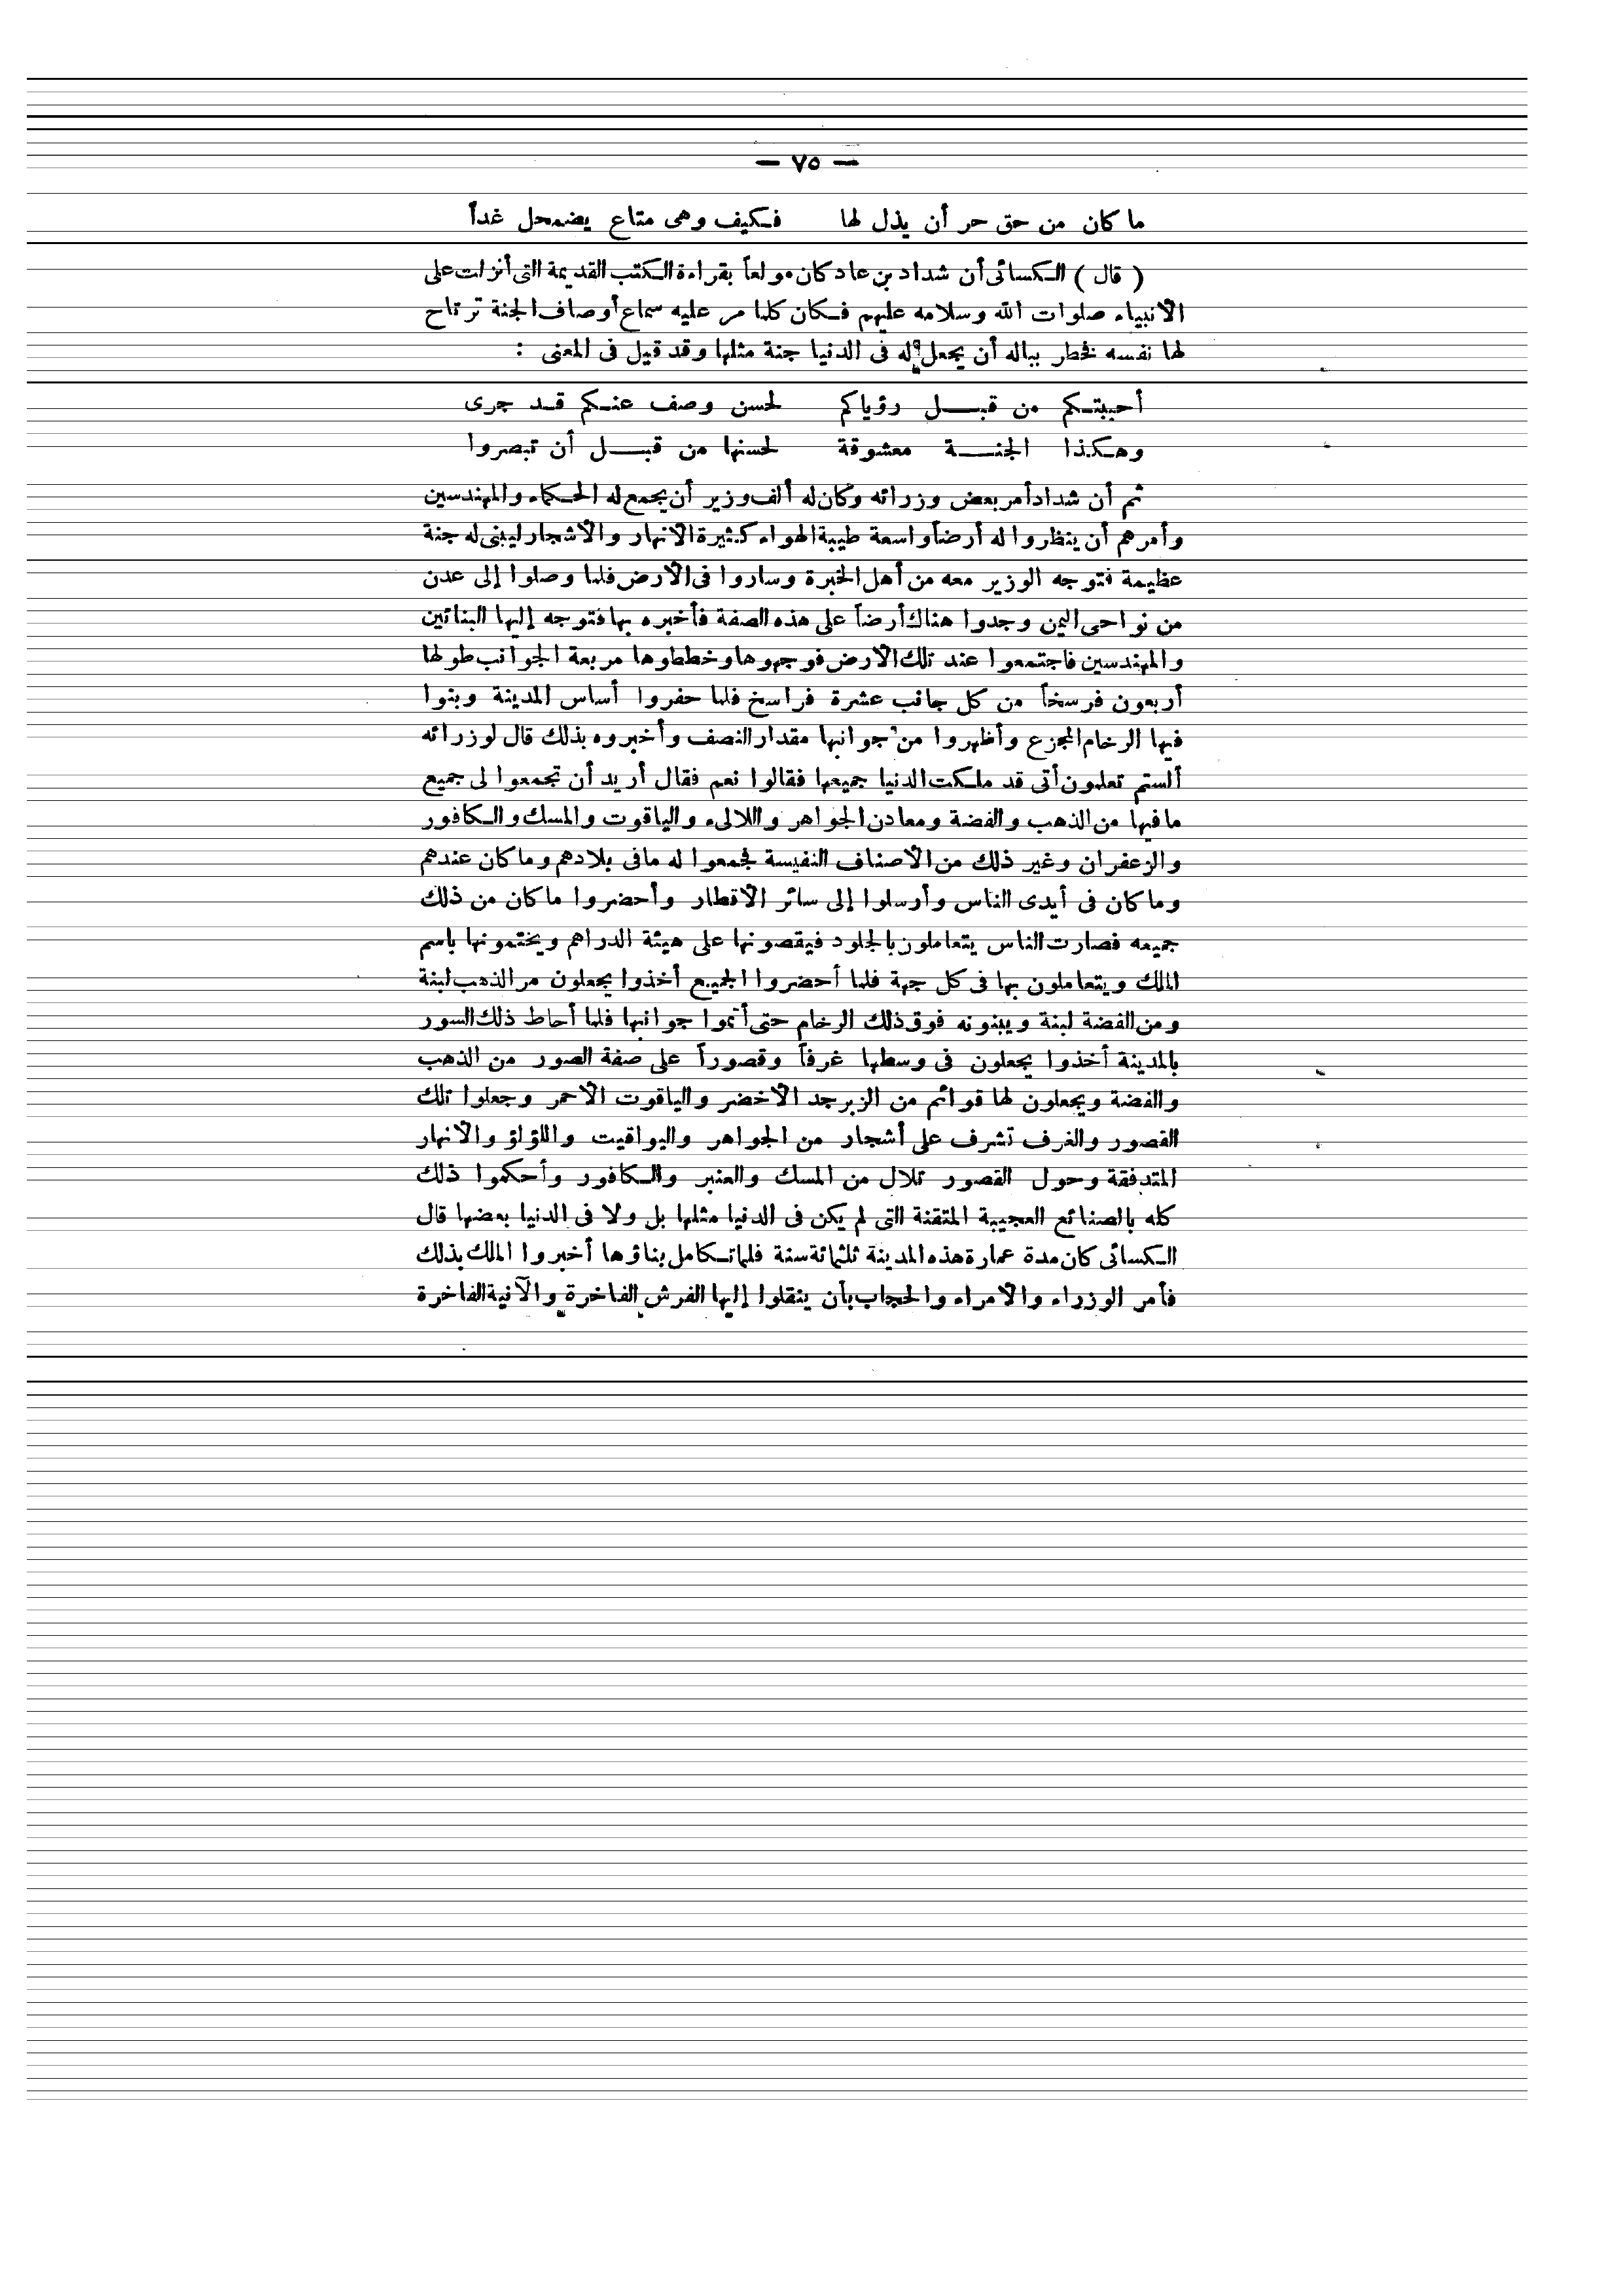 — ٧٥ —
ما كان من حق حر أن يذل لها فكيف وهى متاع يضمحل غداً
( قال ) الكسائى أن شداد بن عاد كان مولعاً بقراءة الكتب القديمة التى أنزلت على
الانبياء صلوات الله وسلامه عليهم فكان كلما مر عليه سماع أوصاف الجنة ترتاح
لها نفسه فخطر بباله أن يجعل له فى الدنيا جنة مثلها وقد قيل فى المعنى :
أحببتكم من قبل رؤياكم لحسن وصف عنكم قد جرى
وهكذا الجنة معشوقة لحسنها من قبل أن تبصروا
ثم أن شداد أمر بعض وزرائه وكان له ألف وزير أن يجمع له الحكماء والمهندسين
وأمرهم أن ينظروا له أرضاً واسعة طيبة الهواء كثيرة الانهار والأشجار ليبنى له جنة
عظيمة فتوجه الوزير معه من أهل الخبرة وساروا فى الأرض فلما وصلوا إلى عدن
من نواحى اليمن وجدوا هناك أرضاً على هذه الصفة فأخبره بها فتوجه إليها البنائين
والمهندسين فاجتمعوا عند تلك الارض فوجهوها وخططوها مربعة الجوانب طولها
أربعون فرسخاً من كل جانب عشرة فراسخ فلما حفروا أساس المدينة وبنوا
فيها الرخام المجزع وأظهروا من جوانبها مقدار النصف وأخبروه بذلك قال لوزرائه
ألستم تعلمون أتى قد ملكت الدنيا جميعها فقالوا نعم فقال أريد أن تجمعوا لى جميع
ما فيها من الذهب والفضة ومعادن الجواهر واللالىء والياقوت والمسك والكافور
والزعفران وغير ذلك من الأصناف النفيسة فجمعوا له مافى بلادهم وما كان عندهم
وما كان فى أيدى الناس وأرسلوا إلى سائر الاقطار وأحضروا ما كان من ذلك
جميعه فصارت الناس يتعاملون بالجلود فيقصونها على هيئة الدراهم ويختمونها باسم
الملك ويتعاملون بها فى كل جهة فلما أحضروا الجميع أخذوا يجعلون من الذهب لبنة
ومن الفضة لبنة ويبنونه فوق ذلك الرخام حتى أتموا جوانبها فلما أحاط ذلك السور
بالمدينة أخذوا يجعلون فى وسطها غرفاً وقصوراً على صفة الصور من الذهب
والفضة ويجعلون لها قوائم من الزبرجد الاخضر والياقوت الاحمر وجعلوا تلك
القصور والغرف تشرف على أشجار من الجواهر واليواقيت واللؤلؤ والانهار
المتدفقة وحول القصور تلال من المسك والعنبر والكافور وأحكموا ذلك
كله بالصنائع العجيبة المتقنة التى لم يكن فى الدنيا مثلها بل ولا فى الدنيا بعضها قال
الكسائى كان مدة عمارة هذه المدينة ثلثمائة سنة فلما تكامل بناؤها أخبروا الملك بذلك
فأمر الوزراء والامراء والحجاب بأن ينقلوا إليها الفرش الفاخرة والآنية الفاخرة